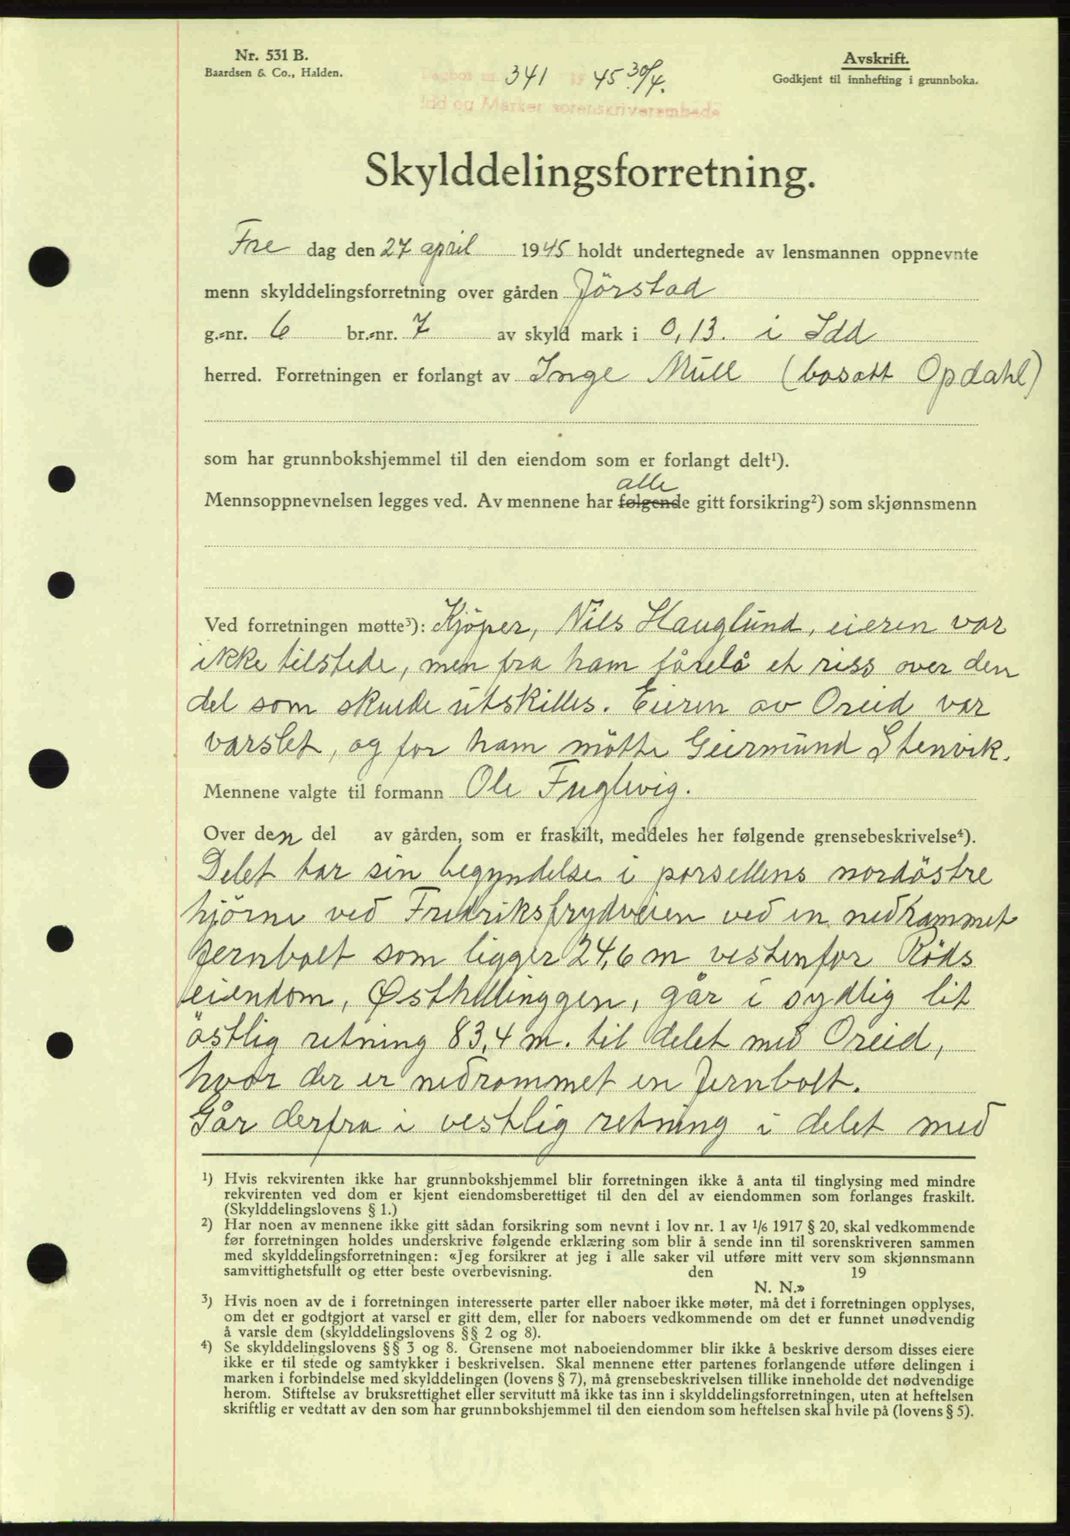 Nr. 531 B.
Baardsen & Co., Halden.
Avskrift.
Godkjent til innhefting i grunnboka.
Dagbok nr. 341 19 45 30/4.
Idd og Marker sorenskriverembede
Skylddelingsforretning.
Fre dag den 27 april 1945 holdt undertegnede av lensmannen oppnevnte
menn skylddelingsforretning over gården Jörstad
g.-nr. 6 br.-nr. 7 av skyld mark i 0,13. i Idd
herred. Forretningen er forlangt av Inge Müll (bosatt Opdahl)
som har grunnbokshjemmel til den eiendom som er forlangt delt¹).
alle
Mennsoppnevnelsen legges ved. Av mennene har følgende gitt forsikring²) som skjønnsmenn
Ved forretningen møtte³): Kjöper, Nils Hauglund, eieren var
ikke tilstede, men fra ham forelå et riss over den
del som skulde utskilles. Eieren av Oreid var
varslet, og for ham mötte Geirmund Stenvik.
Mennene valgte til formann Ole Fuglevig.
Over den del av gården, som er fraskilt, meddeles her følgende grensebeskrivelse⁴).
Delet tar sin begyndelse i parsellens nordöstre
hjörne ved Fredriksfrydveien ved en nedrammet
Jernbolt som ligger 24,6 m vestenfor Röds
eiendom, Østhellinggen, går i sydlig lit
östlig retning 83,4 m. til delet med Oreid,
hvor der er nedrammet en Jernbolt.
Går derfra i vestlig retning i delet med
¹) Hvis rekvirenten ikke har grunnbokshjemmel blir forretningen ikke å anta til tinglysing med mindre
rekvirenten ved dom er kjent eiendomsberettiget til den del av eiendommen som forlanges fraskilt.
(Skylddelingslovens § 1.)
²) Har noen av mennene ikke gitt sådan forsikring som nevnt i lov nr. 1 av 1/6 1917 § 20, skal vedkommende
før forretningen holdes underskrive følgende erklæring som blir å sende inn til sorenskriveren sammen
med skylddelingsforretningen: «Jeg forsikrer at jeg i alle saker vil utføre mitt verv som skjønnsmann
samvittighetsfullt og etter beste overbevisning. den 19
N. N.»
³) Hvis noen av de i forretningen interesserte parter eller naboer ikke møter, må det i forretningen opplyses,
om det er godtgjort at varsel er gitt dem, eller for naboers vedkommende om det er funnet unødvendig
å varsle dem (skylddelingslovens §§ 2 og 8).
⁴) Se skylddelingslovens §§ 3 og 8. Grensene mot naboeiendommer blir ikke å beskrive dersom disses eiere
ikke er til stede og samtykker i beskrivelsen. Skal mennene etter partenes forlangende utføre delingen i
marken i forbindelse med skylddelingen (lovens § 7), må grensebeskrivelsen tillike inneholde det nødvendige
herom. Stiftelse av bruksrettighet eller servitutt må ikke tas inn i skylddelingsforretningen, uten at heftelsen
skriftlig er vedtatt av den som har grunnbokshjemmel til den eiendom som heftelsen skal hvile på (lovens § 5).